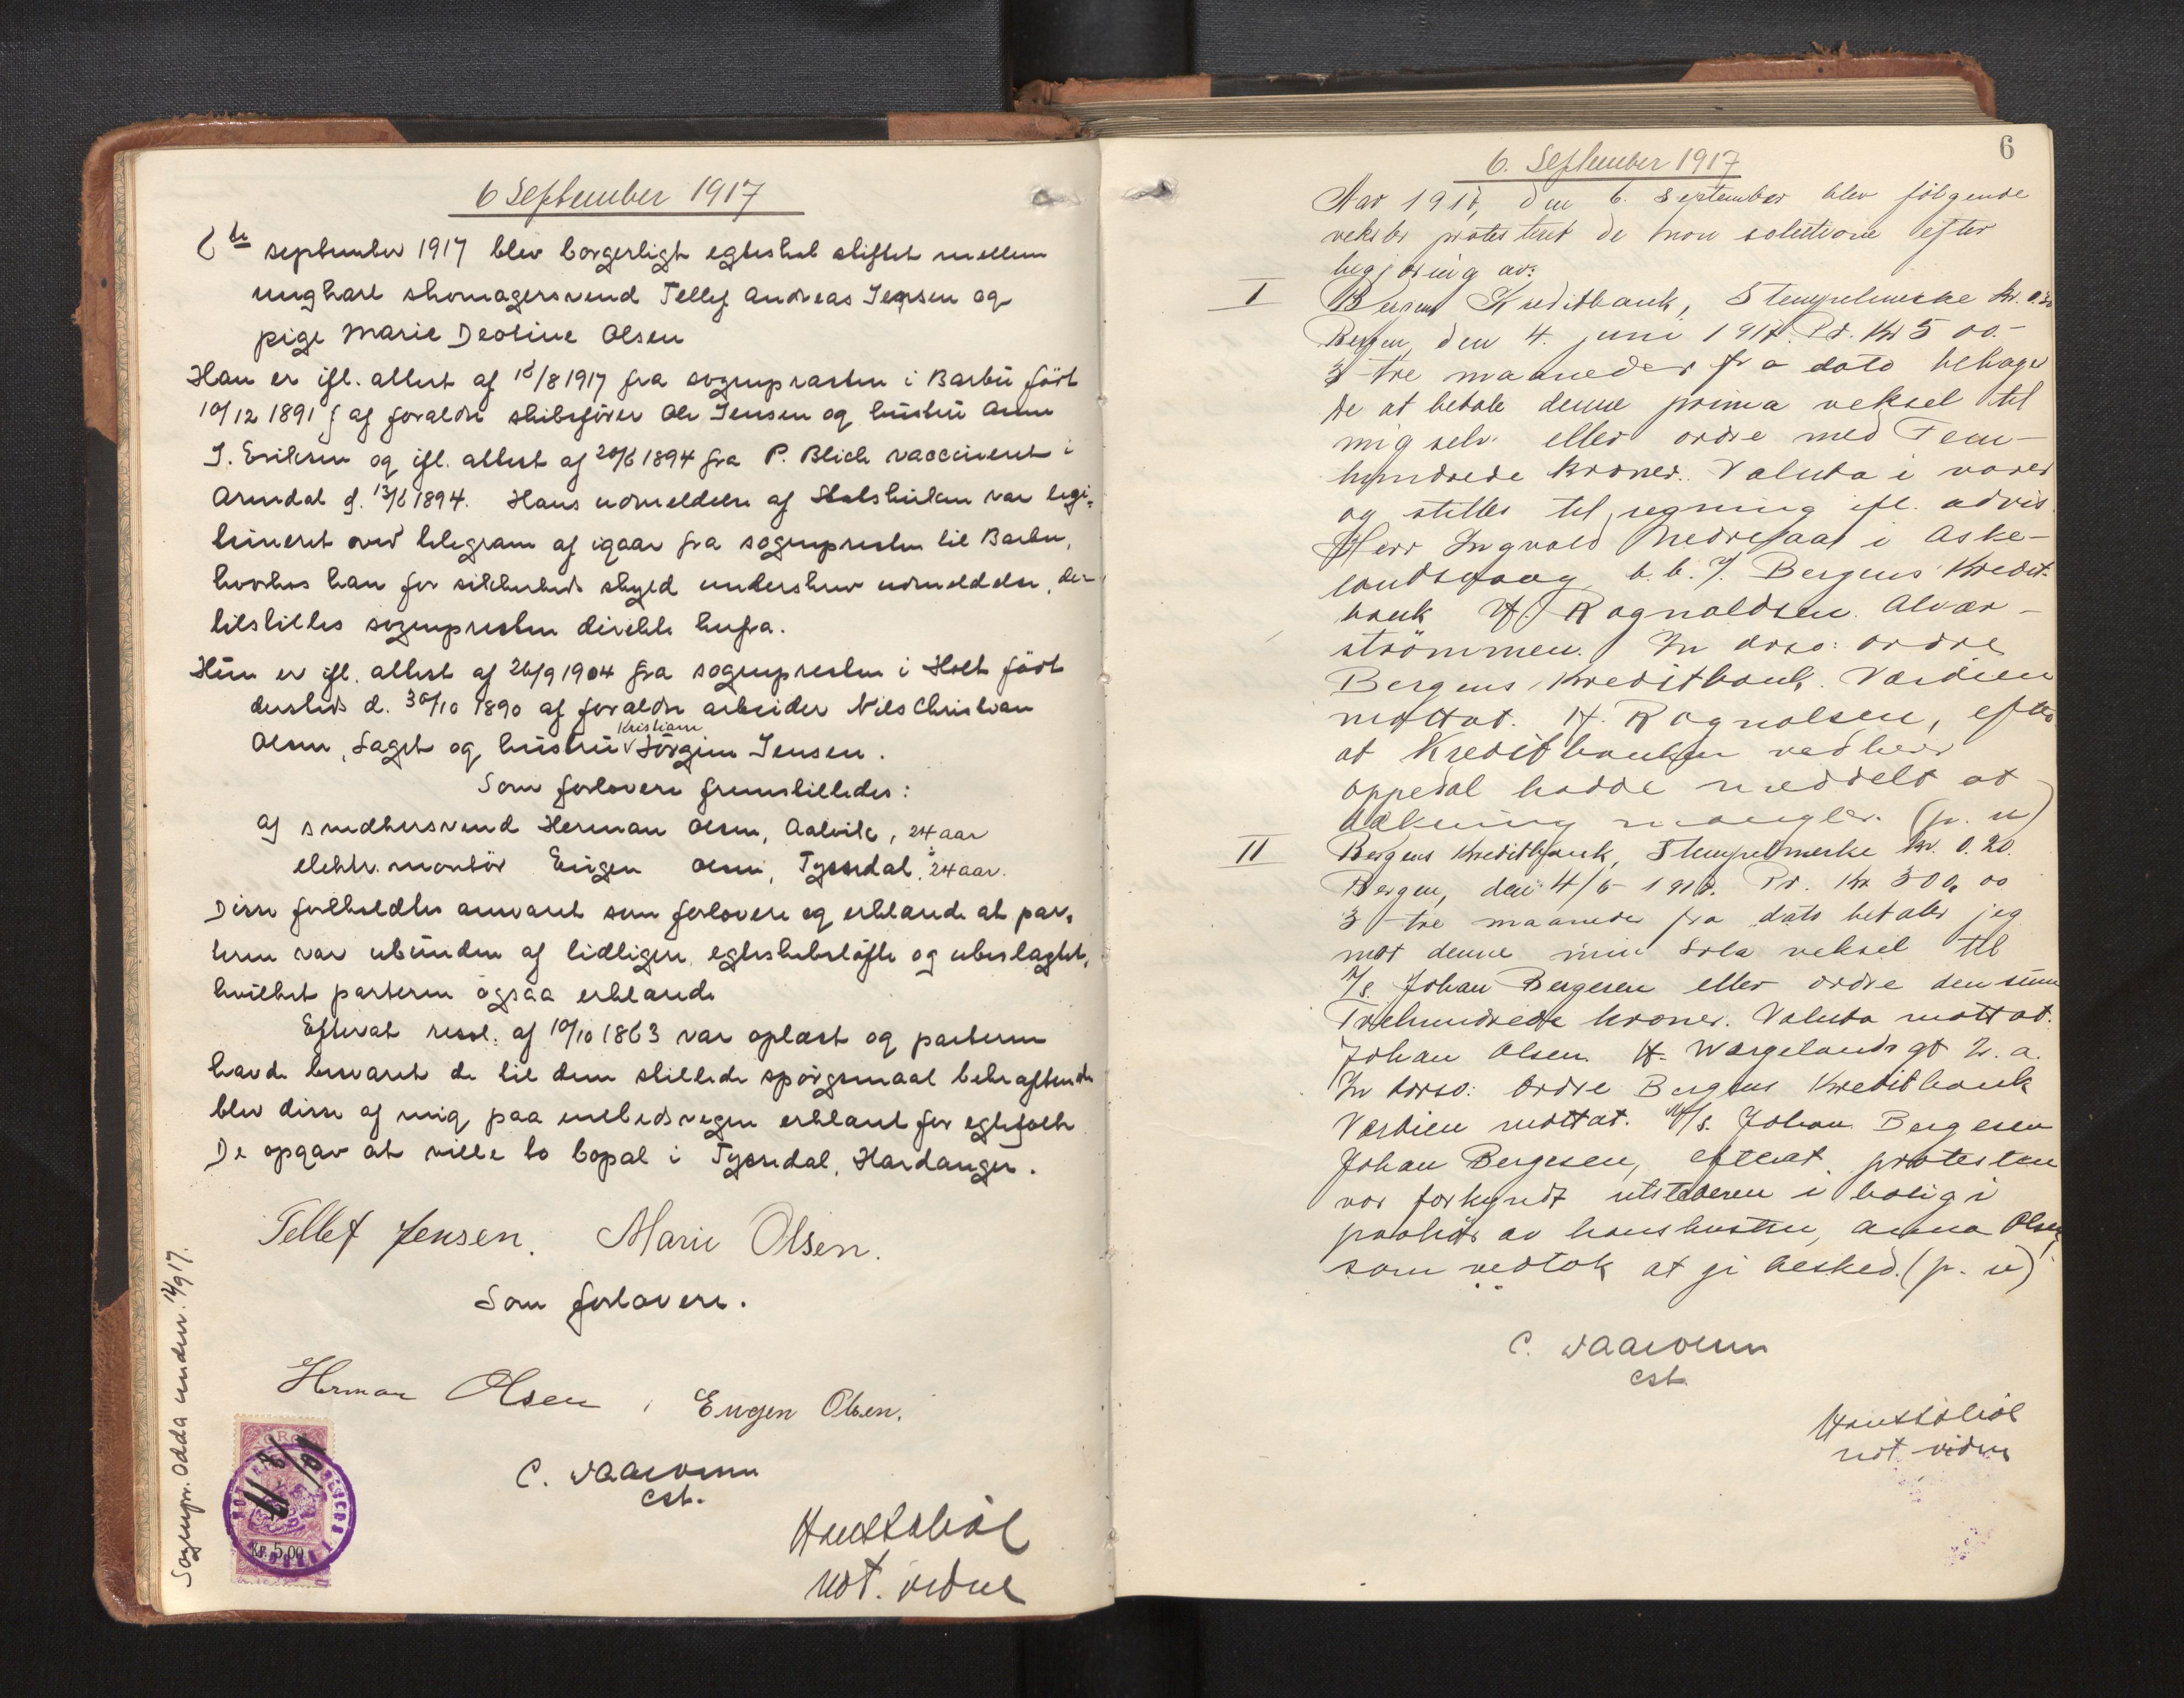 6 September 1917
6te september 1917 blev borgerligt egteskab stiftet mellem
ungkarl skomagersvend Tellef Andreas Jensen og
pige Marie Deoline Olsen
Han er ifl. attest af 18/8 1917 fra sognepræsten i Barbu født
10/12 1891 af forældre skibsfører Ole Jensen og hustru Anne
J. Eriksen og ifl. attest af 20/6 1894 fra P. Blich vaccineret i
Arendal d. 13/6 1894. Hans udmeldelse af Statskirken var legi-
timeret ved telegram af igaar fra sognepresten til Barbu,
hvorhos han for sikkerheds skyld underskrev udmeldelse, der
tilstilles sognepresten direkte herfra.
Hun er ifl. attest af 26/9 1904 fra sognepresten i Holt født
dersteds d. 30/10 1890 af forældre arbeider Nils Christian
Kristiane
Olsen, Saget og hustru Jørgine Jensen.
Som forlovere fremstilledes:
af smedhersvend Herman Olsen, Aalvik, 24 aar
elektr. montør Eugen Olsen, Tyssedal, 24 aar.
Disse foreholdtes ansvaret som forlovere og erklærede at par-
terne var ubundne af tidligere egteskabsløfte og ubeslagtet,
hvilket parterne ogsaa erklærede
Efterat resol. af 10/10 1863 var oplæst og parterne
havde besvaret de til dem stillede spørgsmaal bekræftende
blev disse af mig paa embedsvegne erklæret for egtefolk
De opgav at ville bo bopæl i Tyssedal, Hardanger.
Tellef Jensen. Marie Olsen.
Som forlovere.
Herman Olsen, Eugen Olsen.
C.
cst.
not. vidne
Sognepr. Odda underr. 14/9 17.
Kr. 5,00
6
6. September 1917
Aar 1917, den 6. september blev følgende
veksler protesteret de non solutione efter
begjæring av:
I Bergens Kreditbank, Stempelmerke kr. 0.30
Bergen, den 4. juni 1917. Pr. Kr 500.-
3 tre maaneder fra dato behager
de at betale denne prima veksel til
mig selv eller ordre med Fem-
hundrede kroner. Valuta i varer
og stilles til regning ifl. advis
Herr Ingvald Nedrefaar i Aske-
landsvaag b. b. I. Bergens Kredit-
bank H. Ragnaldsen. Alvær-
strömmen. In dorso: ordre
Bergens Kreditbank. Værdien
mottat. H. Ragnalsen, efter
at Kreditbanken ved herr
Oppedal hadde meddelt at
dækning mangler. (p. u)
II Bergens Kreditbank, Stempelmerke kr. 0.20.
Bergen, den 4/6 1917. Pr. Kr 300,00
3 tre maaneder fra dato betaler jeg
mot denne min Sola veksel til
A/s. Johan Bergesen eller ordre den sum
Trehundrede kroner. Valuta mottat.
Johan Olsen. H. Wergelands gt 2. a.
In dorso: Ordre Bergens Kreditbank
Værdien mottat. A/s. Johan Bergesen
Johan Bergesen, efterat protesten
var forkyndt utstederen i bolig i
paahør av hans hustru, Anna Olsen,
som vedtok at gi besked. (p. u)
C.
cst.
not. vidne